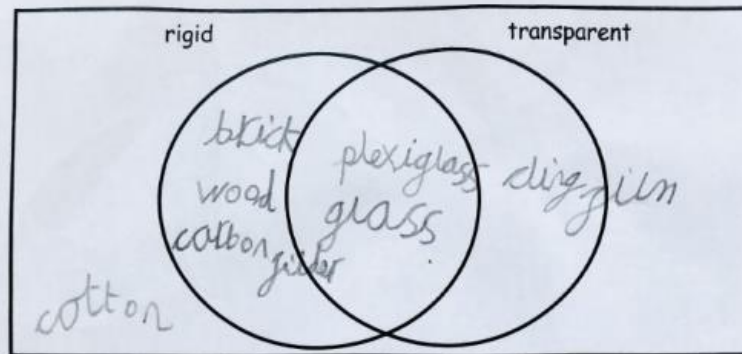 rigid
transparent
brick
wood
carbon fiber
plexiglass
glass
cling film
cotton